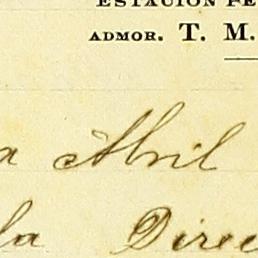 ESTACION PE
ADMOR. T. M.
a Abril
la Direc